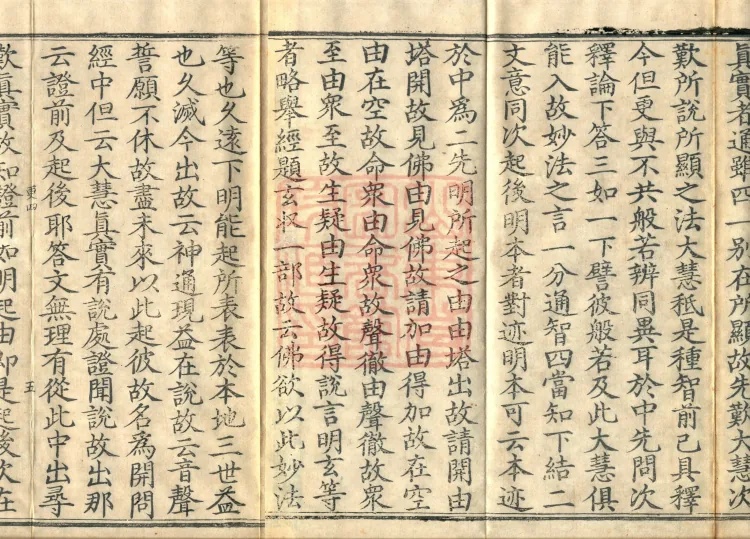 真實者通雖四一別在所顯故先難大慧次
歎所說所顯之法大慧秖是種智前已具釋
今但更與不共般若辨同異耳於中先問次
釋論下答三如一下譬彼般若及此大慧俱
能入故妙法之言一分通智四當知下結二
文意同次起後明本者對迹明本可云本迹
於中為二先明所起之由由塔出故請開由
塔開故見佛由見佛故請加由得加故在空
由在空故命衆由命衆故聲徹由聲徹故衆
至由衆至故生疑由生疑故得說言明玄等
者略舉經題玄収一部故云佛欲以此妙法
等也久遠下明能起所表表於本地三世益
也久滅今出故云神通現益在說故云音聲
誓願不休故盡未來以此起彼故名為開問
經中但云大慧真實有說處證聞說故出那
云證前及起後耶答文無理有從此中出尋
歎真實故知證前如明起由即是起後次在
東四
五